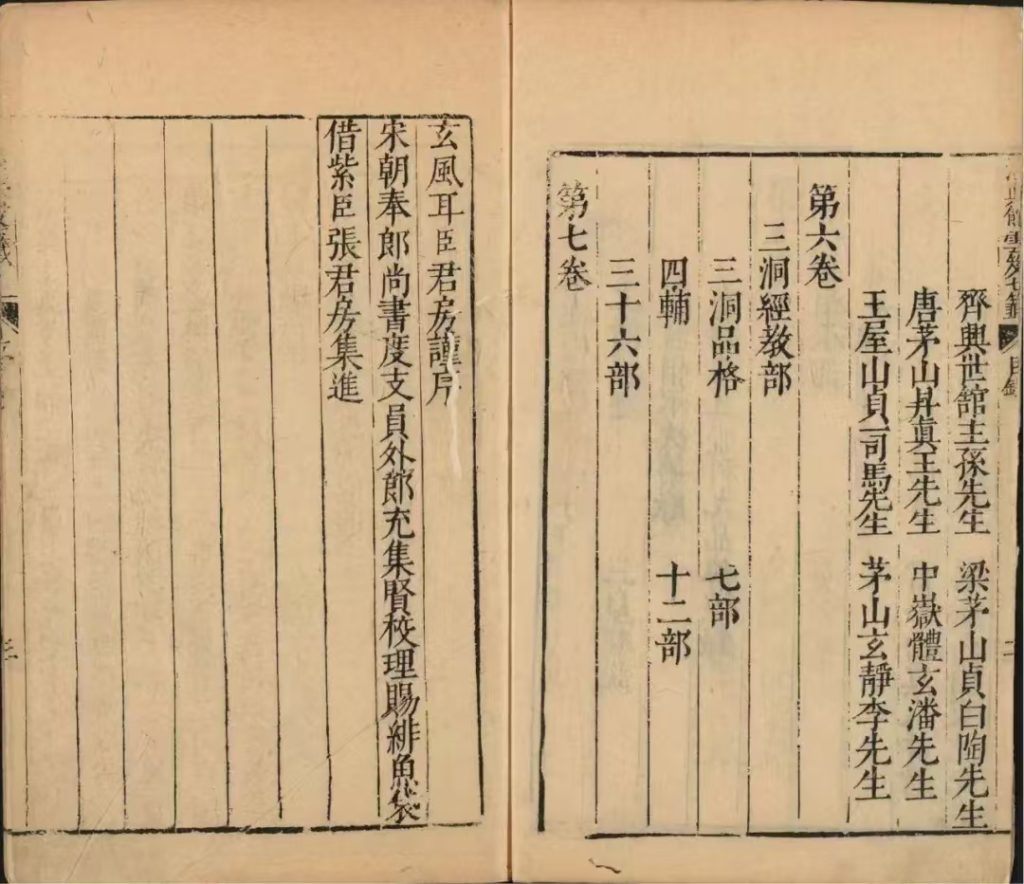 雲笈七籤 目錄 二
齊興世舘主孫先生 梁茅山貞白陶先生
唐茅山昇眞王先生 中嶽體玄潘先生
王屋山貞一司馬先生 茅山玄靜李先生
第六卷
三洞經教部
三洞品格 七部
四輔 十二部
三十六部
第七卷
玄風耳臣君房謹序
宋朝奉郎尚書度支員外郎充集賢校理賜緋魚袋
借紫臣張君房集進
三